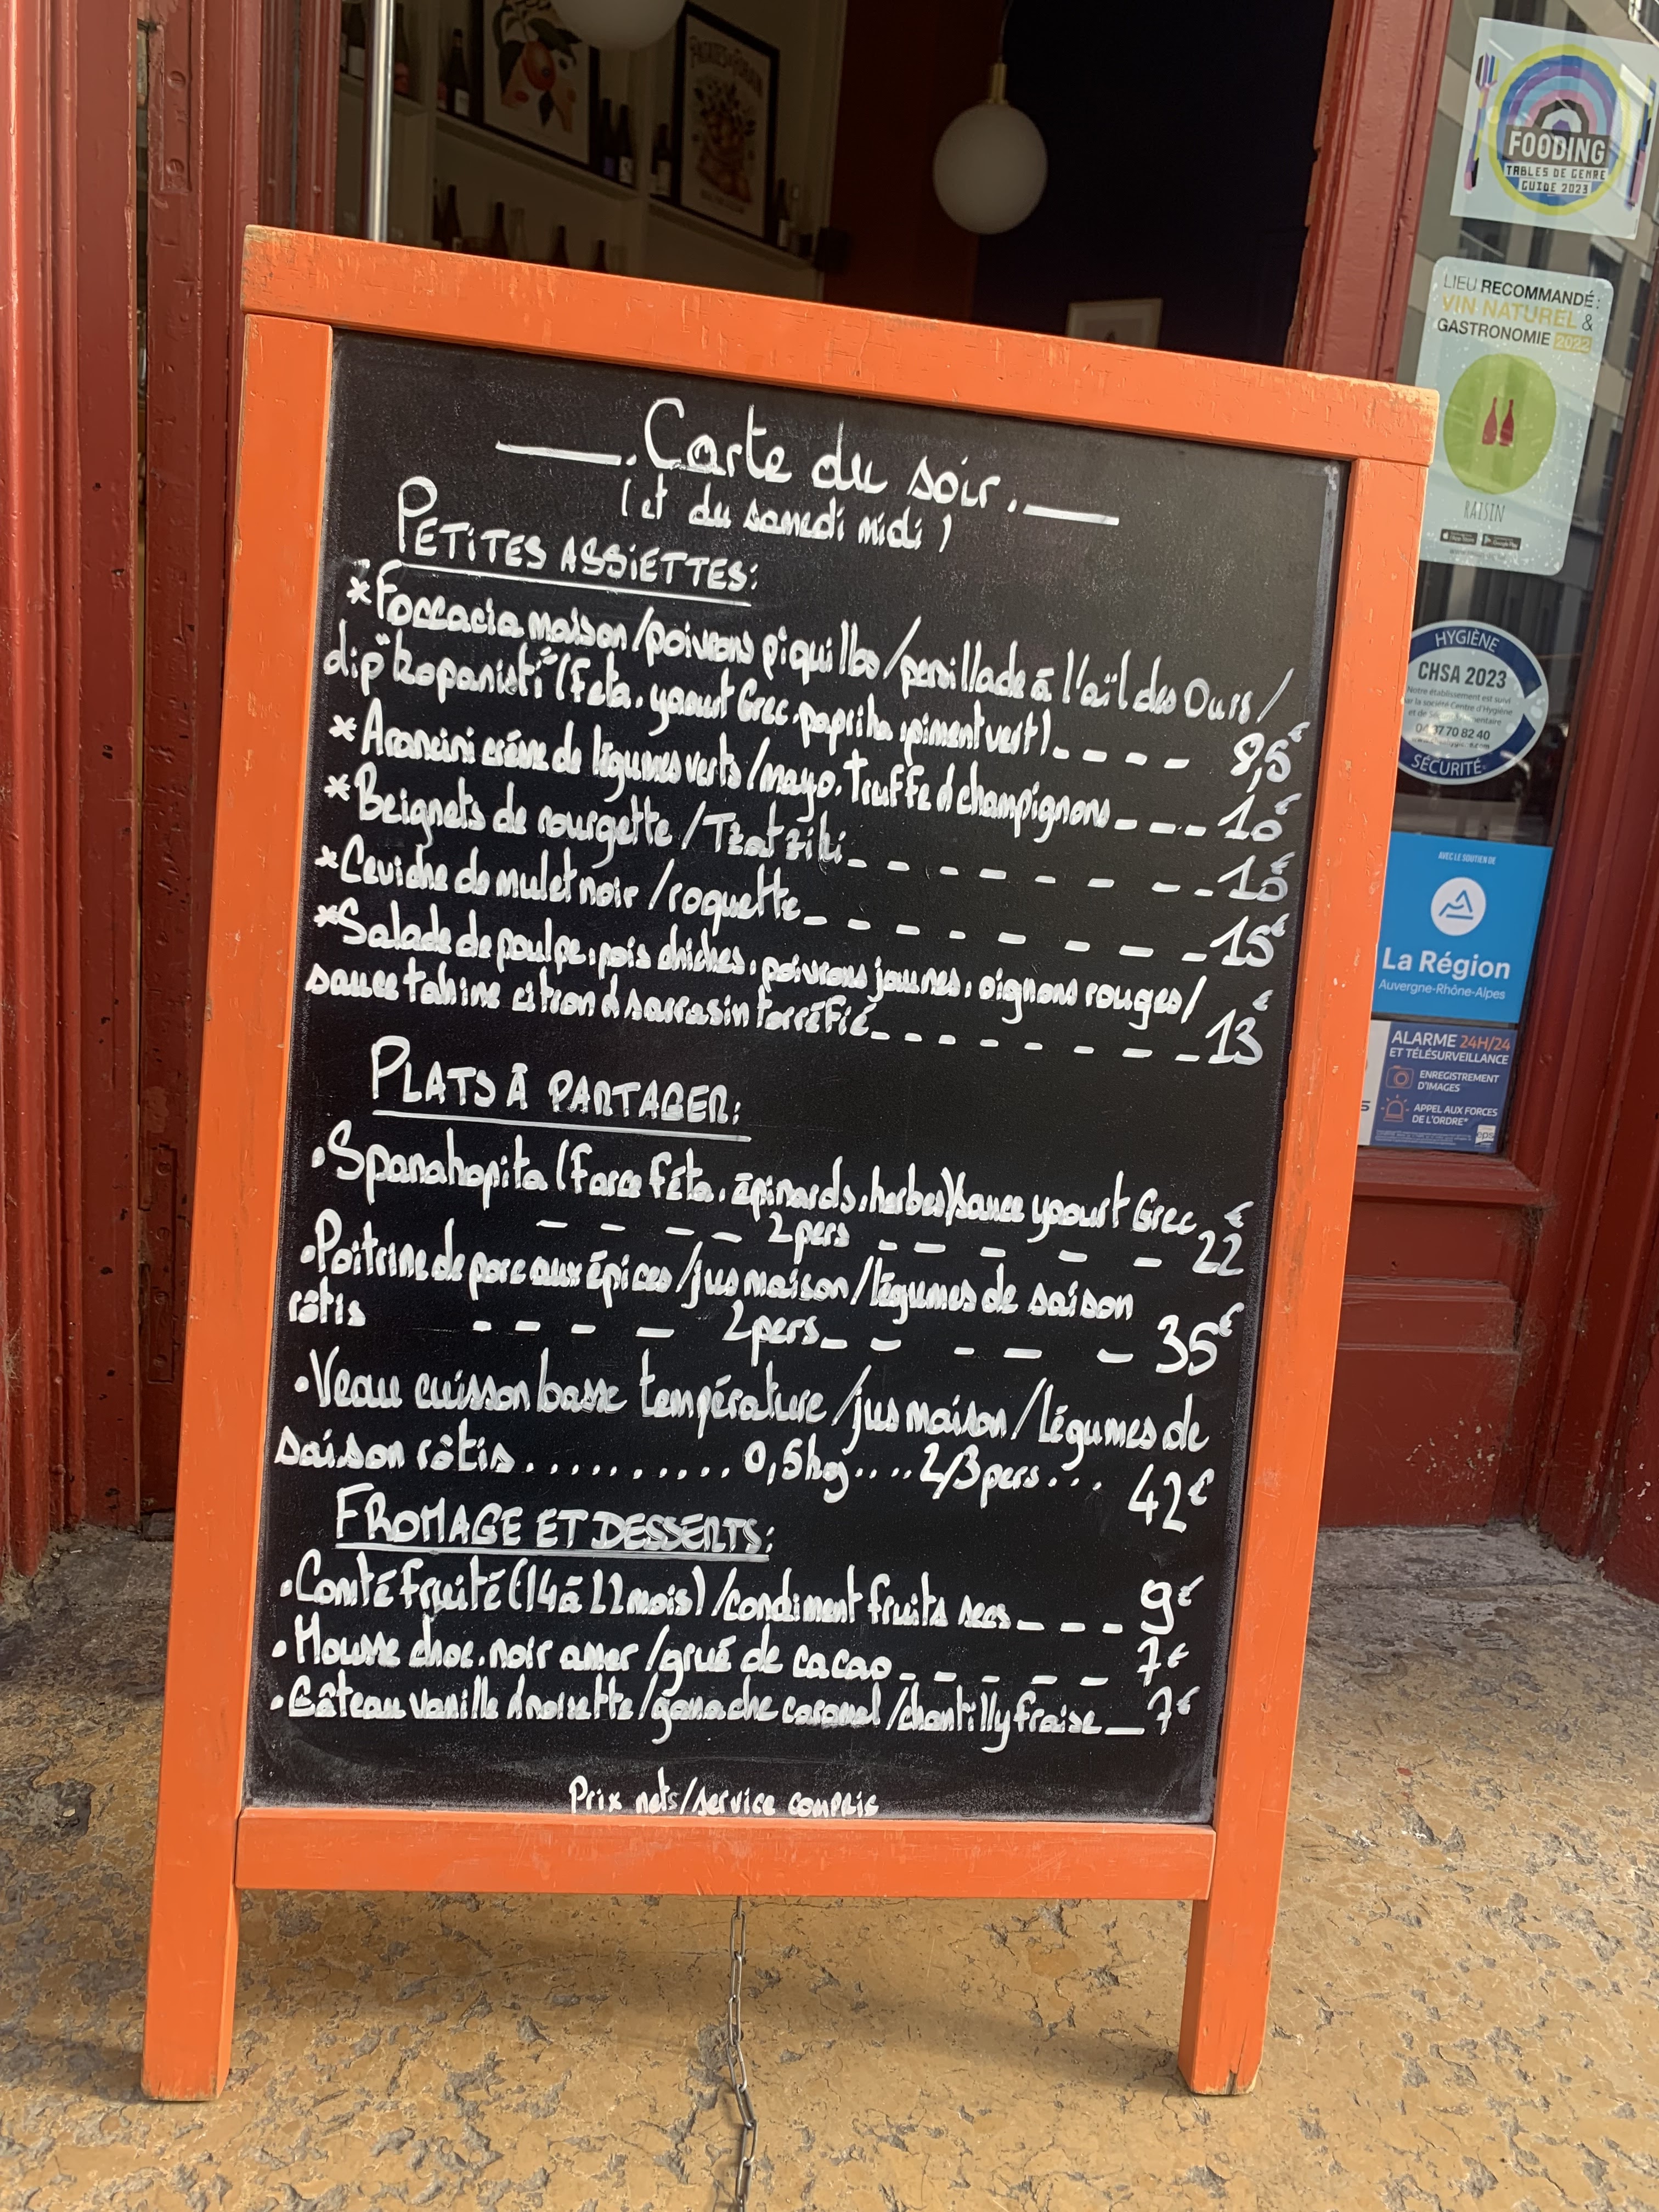 . Carte du soir .
(et du samedi midi)
PETITES ASSIETTES:
*Foccacia maison/poivrons piquillos/persillade à l'aïl des Ours/
dip "kopanisti" (Feta, yaourt Grec, paprika, piment vert) _ _ _ _ 8,5€
*Arancini crème de légumes verts/mayo. truffe & champignons _ _ _ 10€
*Beignets de courgette / Tzatziki _ _ _ _ _ _ _ _ 10€
*Ceviche de mulet noir / roquette _ _ _ _ _ _ _ _ 15€
*Salade de poulpe, pois chiches, poivrons jaunes, oignons rouges/
sauce tahine citron & sarrasin torréfié _ _ _ _ _ _ _ _ 13€
PLATS À PARTAGER:
.Spanakopita (farce féta, épinards, herbes)/sauce yaourt Grec
_ _ _ _ 2pers _ _ _ _ _ 22€
.Poitrine de porc aux épices/jus maison/légumes de saison
rôtis _ _ _ _ 2pers _ _ _ _ _ 35€
.Veau cuisson basse température/jus maison/légumes de
saison rôtis .......... 0,5kg .... 2/3pers ... 42€
FROMAGE ET DESSERTS:
.Comté Fruité (14 à 22 mois) /condiment fruits secs _ _ _ 9€
.Mousse choc. noir amer /grué de cacao _ _ _ _ _ 7€
.Gâteau vanille & noisette/ganache caramel/chantilly fraise _ 7€
Prix nets/service compris
FOODING
TABLES DE GENRE
GUIDE 2023
LIEU RECOMMANDÉ:
VIN NATUREL &
GASTRONOMIE 2022
RAISIN
HYGIÈNE
CHSA 2023
Notre établissement est suivi
par la société Centre d'Hygiène
et de Sécurité Alimentaire
04 37 70 82 40
SÉCURITÉ
AVEC LE SOUTIEN DE
La Région
Auvergne-Rhône-Alpes
ALARME 24H/24
ET TÉLÉSURVEILLANCE
ENREGISTREMENT
D'IMAGES
APPEL AUX FORCES
DE L'ORDRE*